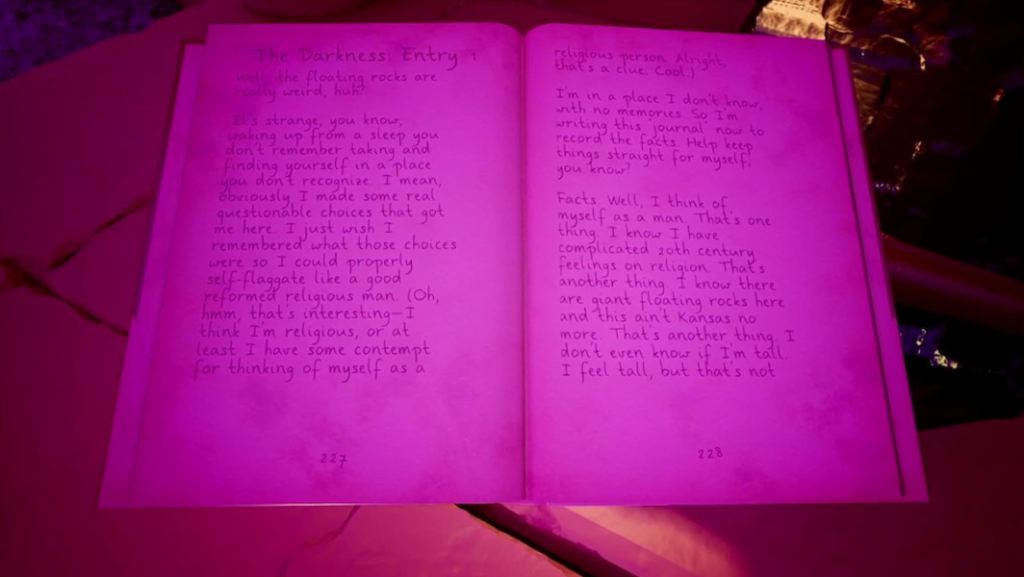 The Darkness: Entry 1
Well, the floating rocks are
really weird, huh?
It's strange, you know,
waking up from a sleep you
don't remember taking and
finding yourself in a place
you don't recognize. I mean,
obviously I made some real
questionable choices that got
me here. I just wish I
remembered what those choices
were so I could properly
self-flaggate like a good
reformed religious man. (Oh,
hmm, that's interesting—I
think I'm religious, or at
least I have some contempt
for thinking of myself as a
227
religious person. Alright,
that's a clue. Cool.)
I'm in a place I don't know,
with no memories. So I'm
writing this 'journal' now to
record the facts. Help keep
things straight for myself,
you know?
Facts. Well, I think of
myself as a man. That's one
thing. I know I have
complicated 20th century
feelings on religion. That's
another thing. I know there
are giant floating rocks here
and this ain't Kansas no
more. That's another thing. I
don't even know if I'm tall.
I feel tall, but that's not
228